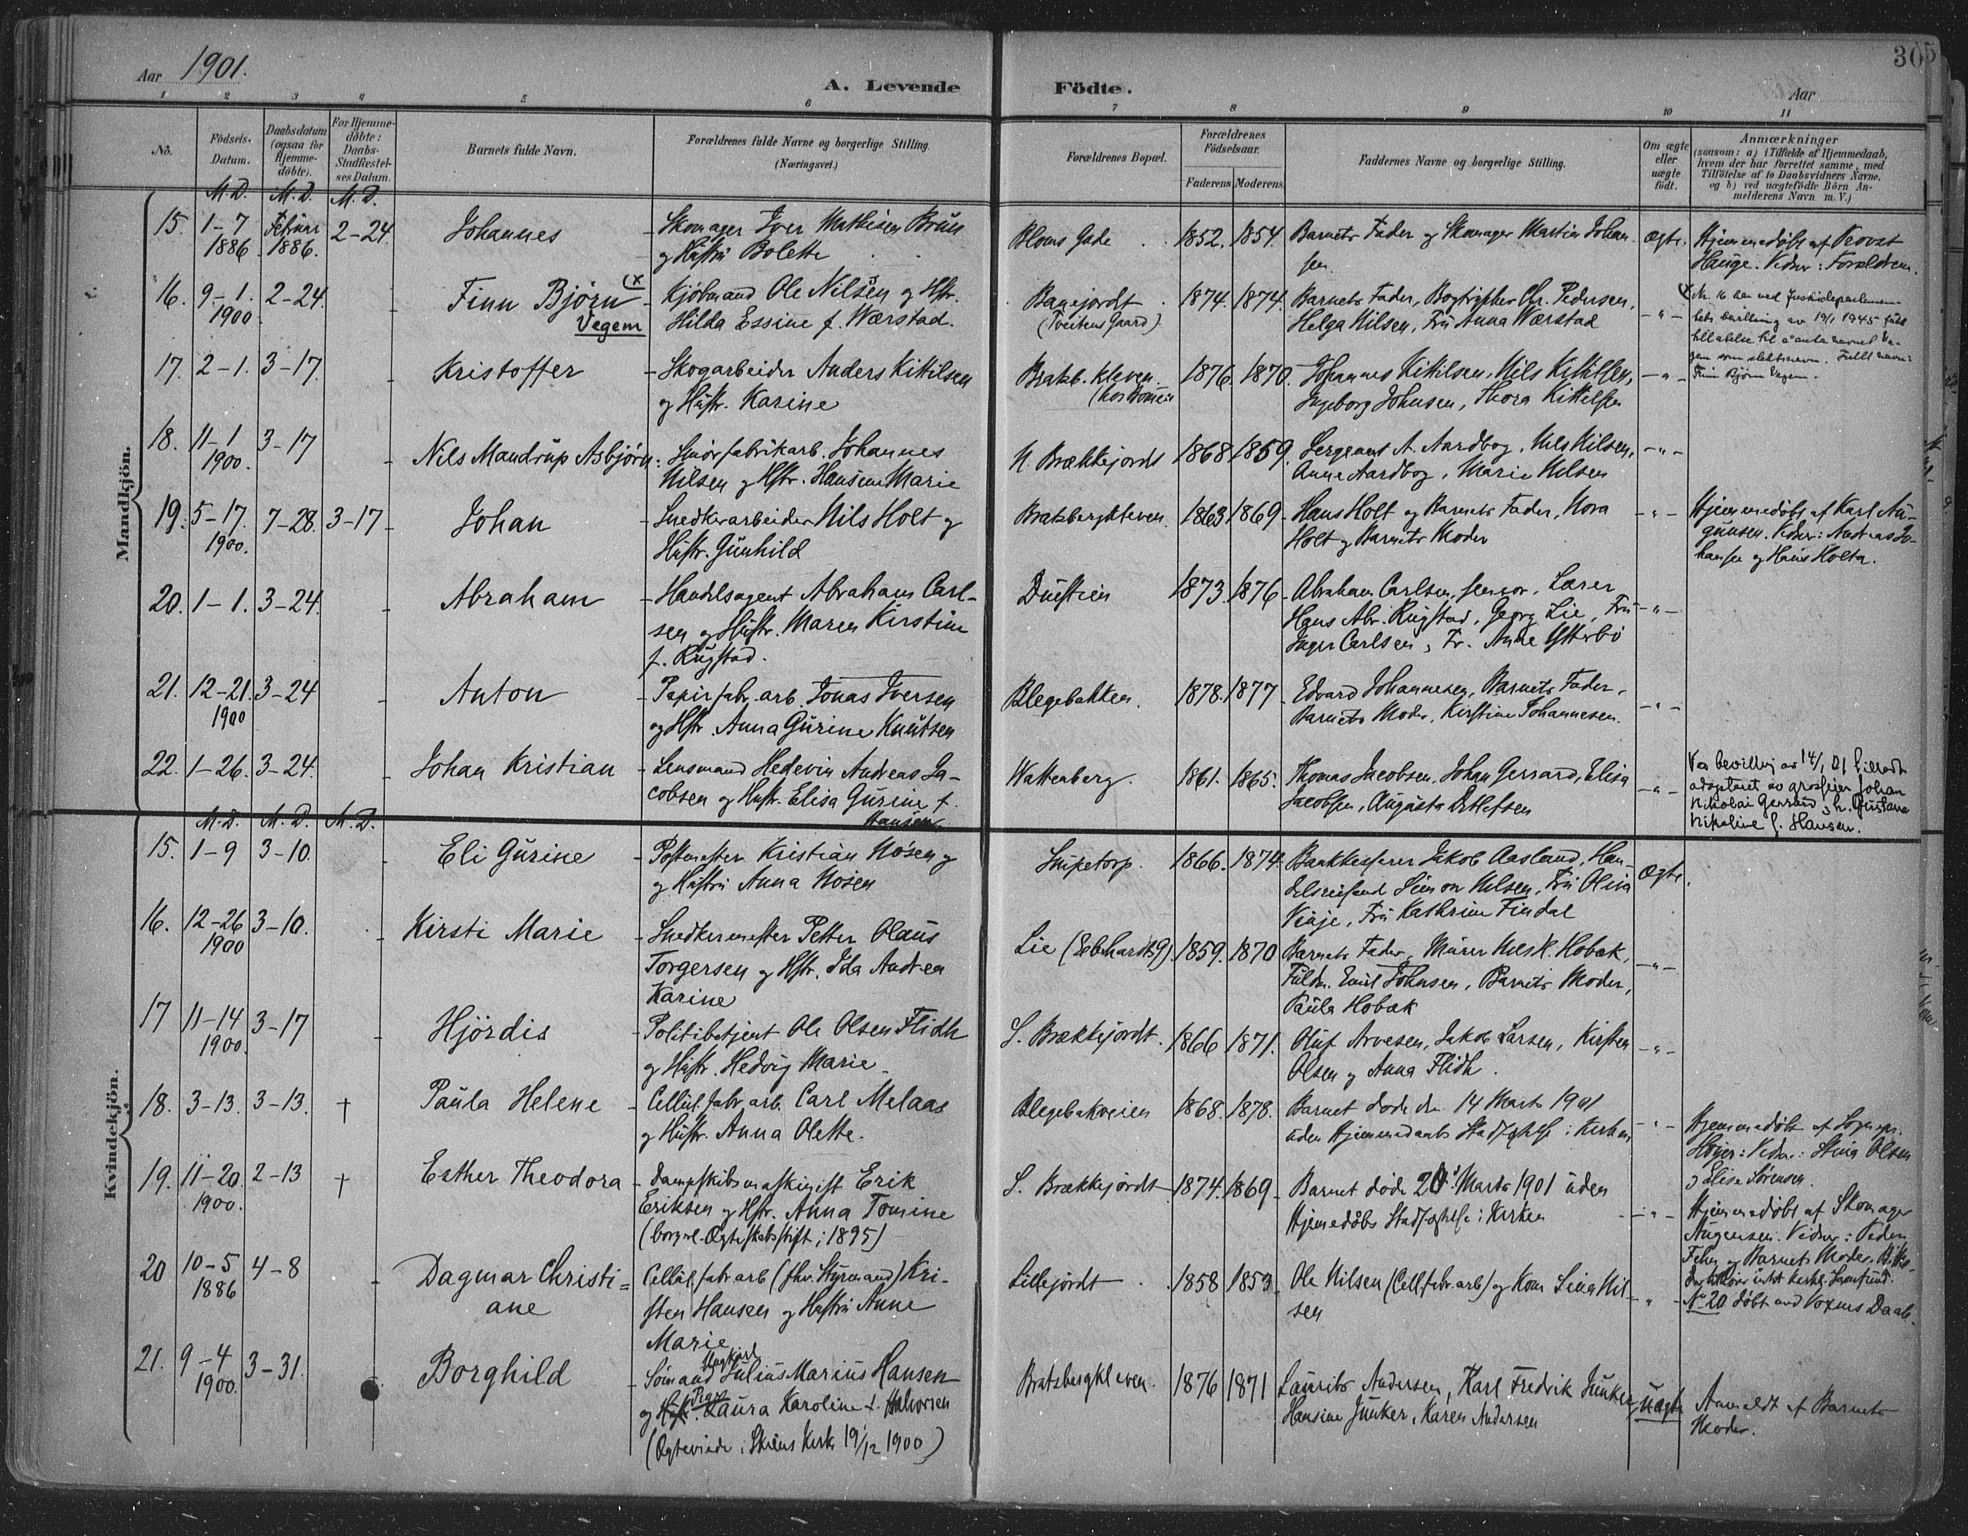 Aar 1901.
A. Levende Födte.
305
Aar
1 2 3 4 5 6 7 8 9 10 11
No.
Födsels-Datum.
Daabsdatum (ogsaa for Hjemme-döbte).
For Hjemme-döbte: Daabs-Stadfæstel-ses Datum.
Barnets fulde Navn.
Forældrenes fulde Navne og borgerlige Stilling. (Næringsvei.)
Forældrenes Bopæl.
Forældrenes Födselsaar.
Faderens. Moderens.
Faddernes Navne og borgerlige Stilling.
Om ægte eller uægte födt.
Anmærkninger
(saasom: a) i Tilfælde af Hjemmedaab, hvem der har forrettet samme, med Tilföielse af to Daabsvidners Navne, og b) ved uægtefödte Börn An-melderens Navn m. V.)
M. D. M. D. M. D.
Mandkjön.
15. 1-7 1886 Februar 1886. 2-24 Johannes
Skomager Iver Mathisen Bruun
og Hustru Bolette
Bloms Gade 1852. 1854.
Barnets Fader og Skomager Martin Johan-
sen
ægte.
Hjemmedøbt af Provst
Hauge. Vidner: Forældrene.
16. 9-1. 1900 2-24. Finn Bjørn (x
Vegem
Kjøbmand Ole Nilsen og Hstr.
Hilda Essine f. Wærstad.
Banejordt
(Tveitens Gaard)
1874. 1874.
Barnets Fader, Bogtrykker Chr. Pedersen,
Helga Nilsen, Fru Anna Wærstad
- " -
x Nr. 16 har ved Justisdepartemen-
tets bevilling av 19/1 1945 fått
tillatelse til å anta navnet Ve-
gem som slektsnavn. Fullt navn:
Finn Bjørn Vegem.
17. 2-1. 3-17. Kristoffer
Skogarbeider Anders Kittilsen
og Hustr. Karine
Bratsb. kleven.
1876. 1870.
Johannes Kittilsen, Nils Kittilsen,
Ingeborg Johnsen, Thora Kittilsen
- " -
18. 11-1 1900. 3-17 Nils Mandrup Asbjørn
Smørfabrikarb. Johannes
Nilsen og Hstr. Hansine Marie
N. Brækkejordt 1868 1859.
Sergeant A. Aardbog, Nils Nilsen,
Anne Aardbog, Marie Nilsen
- " -
19. 5-17. 1900. 7-28. 3-17 Johan
Snedkerarbeider Nils Holt og
Hustr. Gunhild
Bratsbergkleven. 1863 1869
Hans Holt og Barnets Fader, Nora
Holt og Barnets Moder
- " -
Hjemmedøbt af Karl Au-
gunsen. Vidner: Andreas Jo-
hansen og Hans Holta.
20. 1-1. 3-24. Abraham
Handelsagent Abraham Carl-
sen og Hustr. Maren Kirstine
f. Rugstad.
Duestien 1873. 1876
Abraham Carlsen senior, Lærer
Hans Abr. Rugstad, Georg Lie, Fru
Inger Carlsen, Fr. Anne Ytterbö
- " -
21. 12-21. 1900 3-24 Anton
Papirfabr. arb. Jonas Iversen
og Hstr. Anna Gurine Knutsen
Blegebakken. 1878. 1877
Edvard Johannesen, Barnets Fader,
Barnets Moder, Kirstine Johannesen.
- " -
22. 1-26. 3-24. Johan Kristian
Lensmand Hedevin Andreas Ja-
cobsen og Hustr. Elisa Gurine f.
Hansen
Wattenberg. 1861. 1865.
Thomas Jacobsen, Johan Gerrard, Elisa
Jacobsen, Augusta Detlefsen
- " -
Ved bevilling av 14/1 21 tilladt
adopteret av grosserer Johan
Nikolai Gerrard og h. Gustava
Nikoline f. Hansen.
M. D. M. D. M. D.
Kvindekjön.
15. 1-9 3-10. Eli Gurine
Postmester Kristian Nosen og
og Hustru Anna Nosen
Snipetorp 1866. 1874.
Bankkasserer Jakob Aasland, Han-
delsreisende Simon Nilsen, Fru Oliva
Vinje, Fru Kathrine Findal
Ægte.
16. 12-26 1900 3-10. Kirsti Marie
Snedkermester Petter Olaus
Torgersen og Hstr. Ida Andrea
Karine
Lie (Gebhardts G) 1859. 1870
Barnets Fader, Murer Hobæk,
Fuldm. Emil Johnsen, Barnets Moder,
Paula Hobæk
- " -
17 11-14 1900. 3-17 Hjördis
Politibetjent Ole Olsen Flidh
og Hustr. Hedvig Marie
S. Brækkejordt. 1866 1871.
Oluf Arvesen, Jakob Larsen, Kirsten
Olsen og Anna Flidh.
- " -
18. 3-13. 3-13. † Paula Helene
Cellul. fabr. arb. Carl Melaas
og Hustr. Anna Olette.
Blegebakveien 1868. 1878.
Barnet døde den 14 Marts 1901
uden Hjemmedaabs Stadfæstelse i Kirken
- " -
Hjemmedøbt af Sognepr.
Høyer: Vidner: Stina Olsen
og Elise Sörensen.
19. 11-20. 1900. 2-13 † Esther Theodora
Dampskibsmaskinist Erik
Eriksen og Hstr. Anna Tomine
(borgerl. Ægteskabsstift. i 1895)
S. Brækkejordt 1874. 1869
Barnet døde 20. Marts 1901 uden
Hjemmedøbs Stadfæstelse i Kirken
- " -
Hjemmedøbt af Skomager
Augensen. Vidner: Peder
og Barnets Moder.
20 10-5 1886 4-8 Dagmar Christi-
ane
Cellul. fabr. arb (fhv. Styrmand) Kri-
sten Hansen og Hustru Anne
Marie
Lillejordt 1858 1853
Ole Nilsen (Cell. fabr. arb) og Kone Lina Nil-
sen
- " -
No 20 døbt ved Voxens Daab.
21. 9-4 1900. 3-31. Borghild
Ungkarl
Sömand Julius Marius Hansen
Pige
og Hstr. Laura Karoline f. Halvorsen
(Ægteviede i Skiens Kirke 19/12 1900)
Bratsbergkleven. 1876 1871
Laurits Andersen, Karl Fredrik Junker,
Hansine Junker, Karen Andersen
Uægte
Anmeldt af Barnets
Moder.